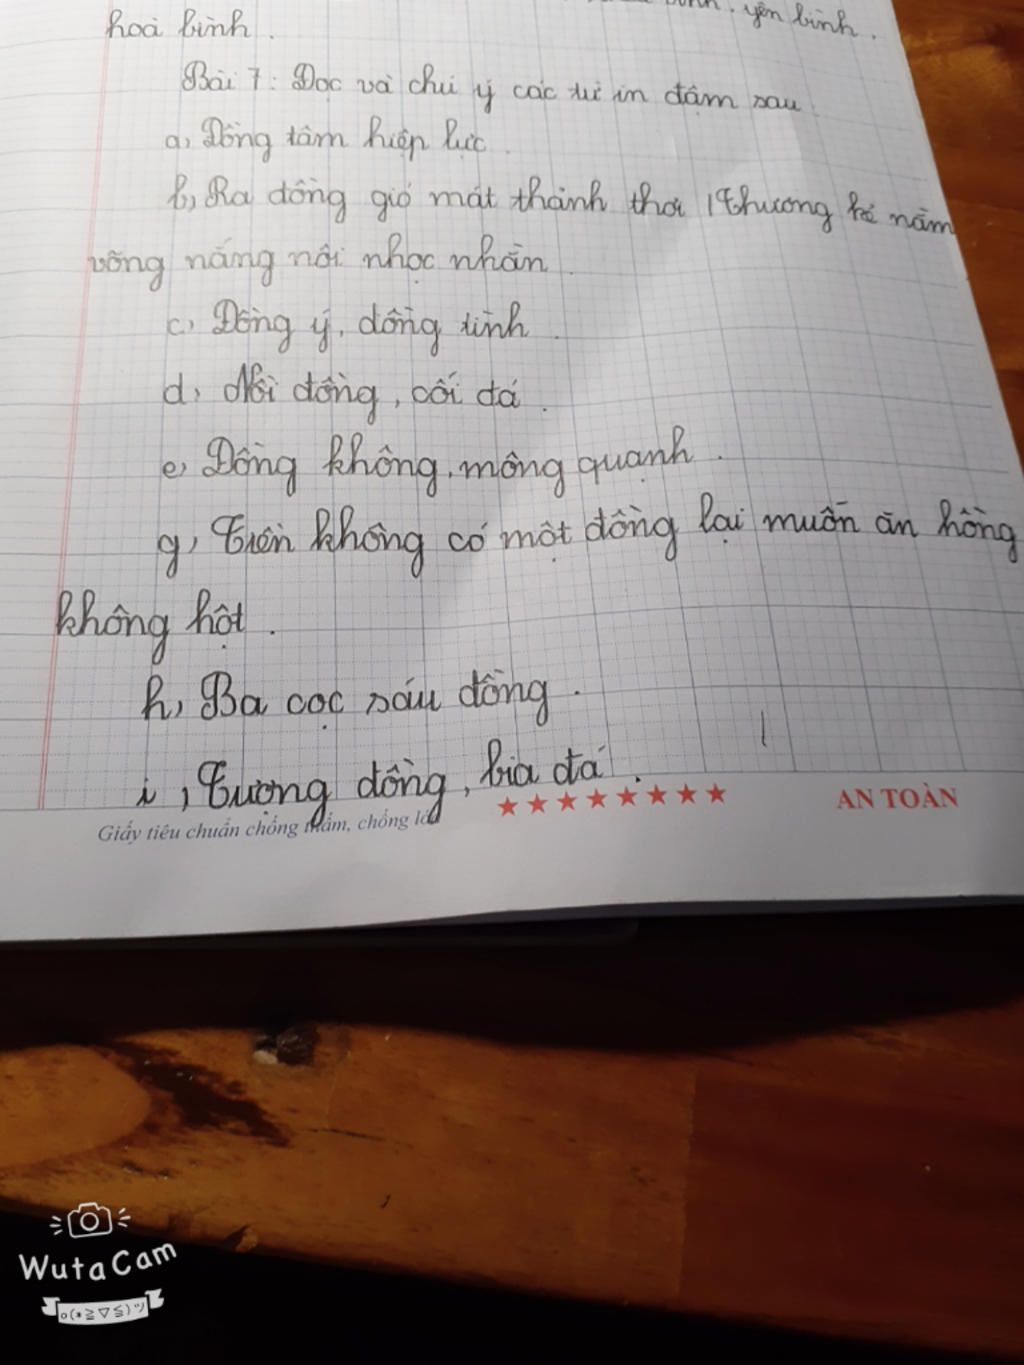 hoà bình.
yên bình.
Bài 7: Đọc và chú ý các từ in đậm sau
a, Đồng tâm hiệp lực.
b, Ra đồng gió mát thảnh thơi / Thương kẻ nằm
võng nắng nôi nhọc nhằn.
c, Đồng ý, đồng tình.
d, Nồi đồng, cối đá.
e, Đồng không, mông quạnh.
g, Tiền không có một đồng lại muốn ăn hồng
không hột.
h, Ba cọc sáu đồng.
i, Tượng đồng, bia đá.
Giấy tiêu chuẩn chống thấm, chống
AN TOÀN
WutaCam
o(*≧▽≦)ツ